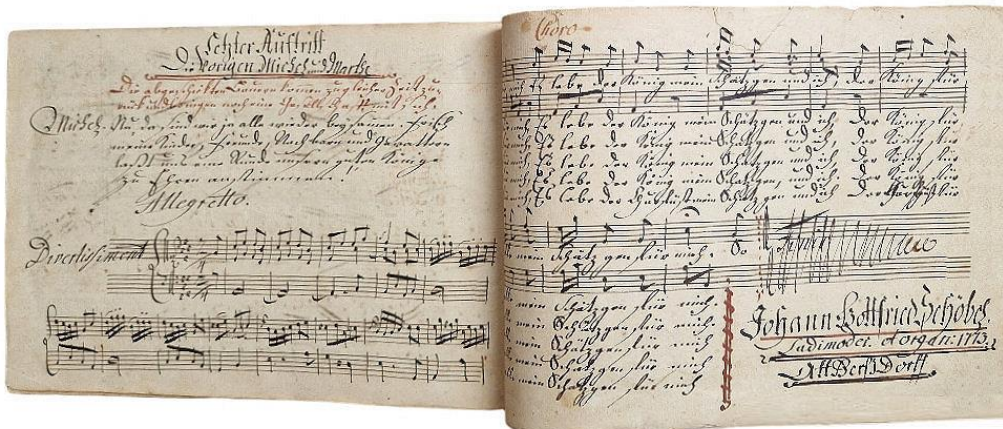 Letzter Auftritt
Die Vorigen Michel und Marthe
Die abgeschickten Bauern komen zu gleicher Zeit zu-
rük und bringen noch eine
Michel. Nu, da sind wir ja alle wieder beysamen. Frisch
meine Kinder, Freunde, Nachbarn und Gevattern
laßt uns eine Runde unserm guten Könige
zu Ehren anstimmen!
Allegretto.
Divertissiment
Choro
Es lebe der König mein Schätzgen und ich, der König für
Es lebe der König mein Schätzgen und ich, der König für
Es lebe der König mein Schätzgen und ich, der König für
Es lebe der König mein Schätzgen und ich, der König für
Es lebe der König mein Schätzgen, und ich, der König für
Es lebe der Churfürst mein Schätzgen und ich der Churfürst für
mein Schätzgen für mich. So
Finis
mein Schätzgen für mich.
mein Schätzgen für mich
mein Schätzgen für mich
mein Schätzgen für mich
mein Schätzgen für mich
Johann Gottfried Schöbel.
Ludimoder. et organ: 1773.